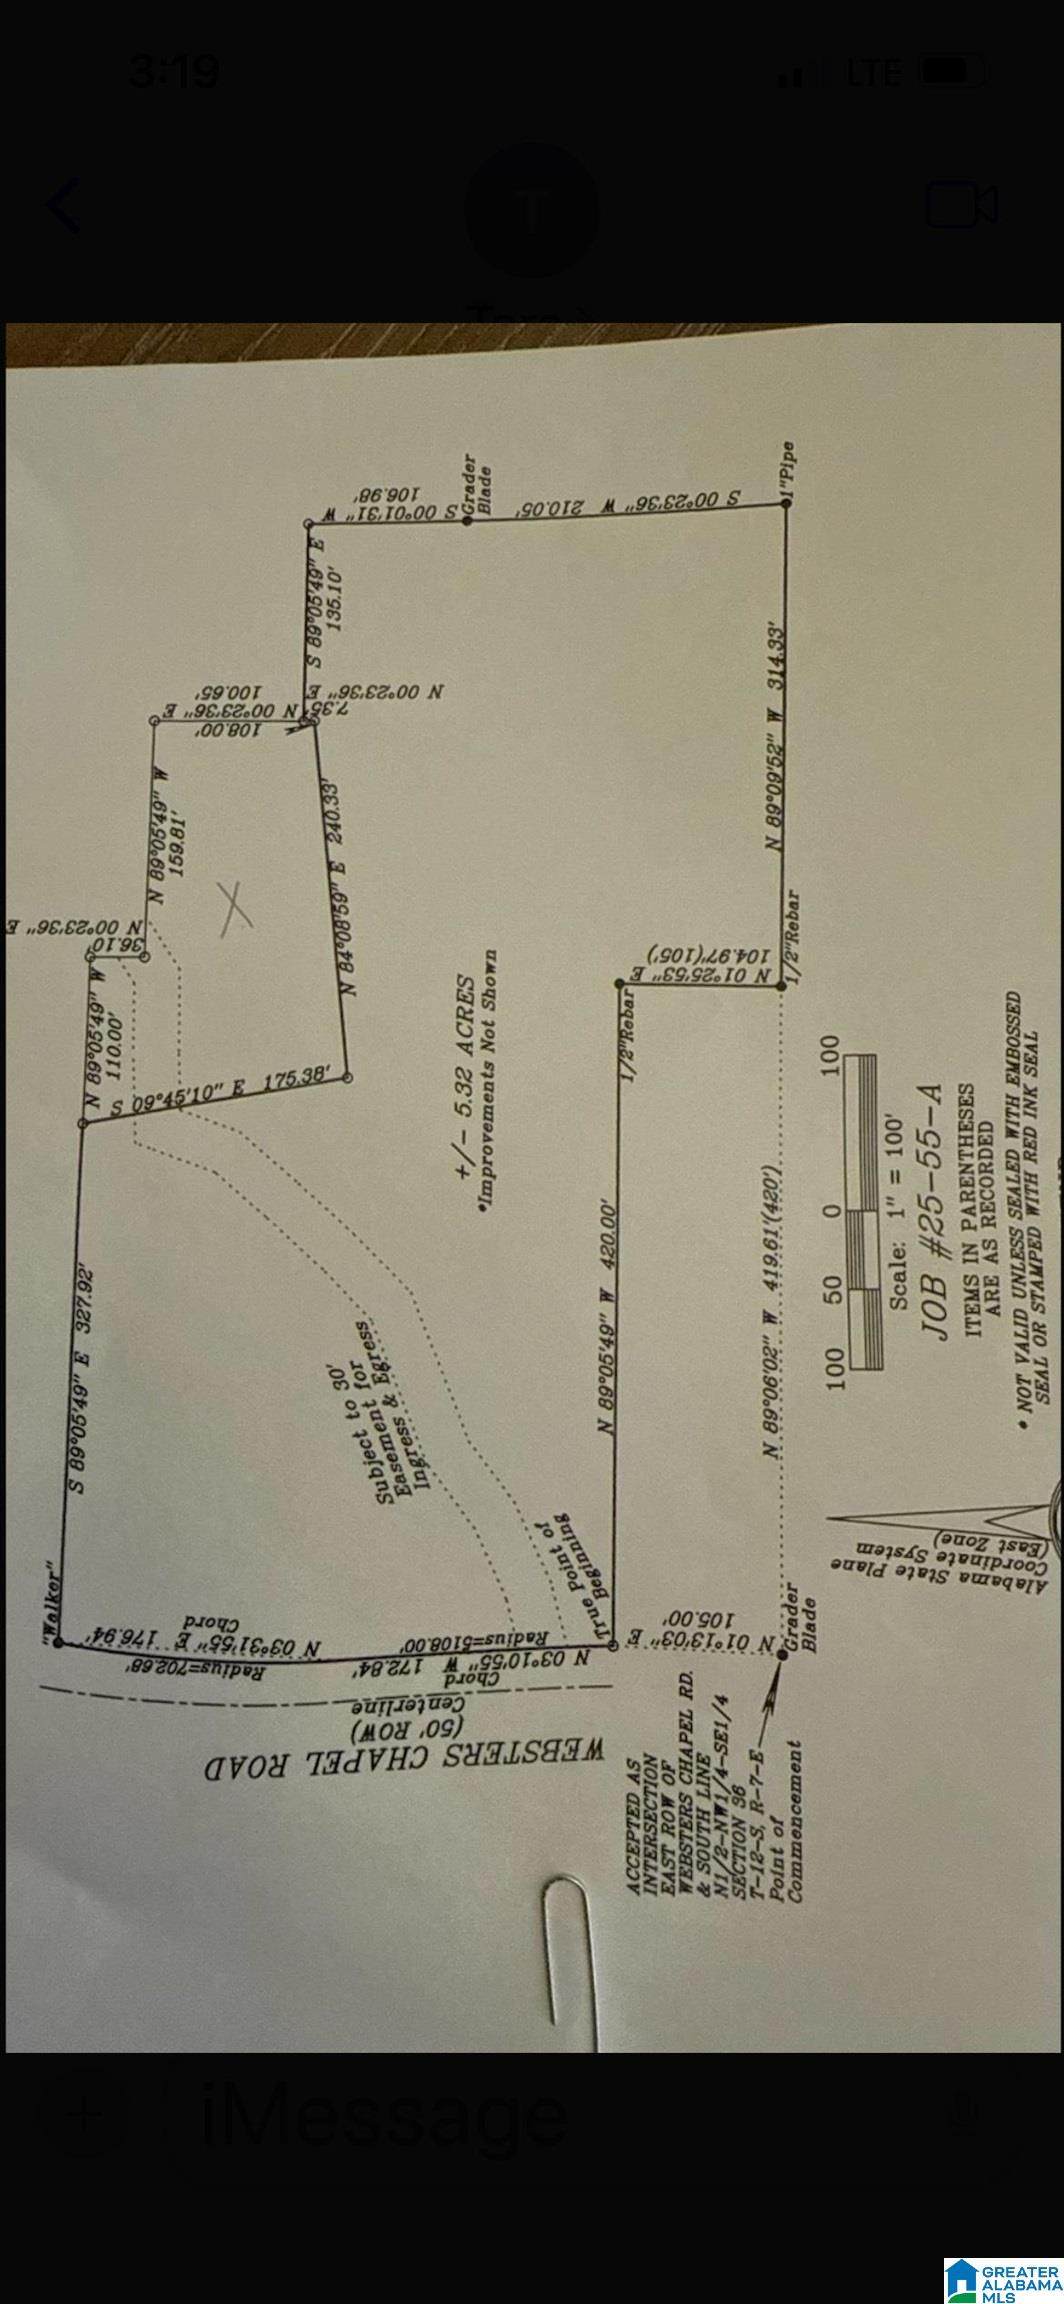 3:19
LTE
T
"Walker"
S 89°05'49" E 327.92'
N 89°05'49" W
110.00'
N 00°23'36" E
36.10'
N 89°05'49" W
159.81'
N 00°23'36" E
108.00'
100.65'
N 00°23'36" E
7.35'
S 89°05'49" E
135.10'
S 00°01'31" W
106.98'
Grader
Blade
S 00°23'36" W 210.05'
1"Pipe
N 89°09'52" W 314.33'
1/2"Rebar
N 01°25'53" E
104.97'(105')
1/2"Rebar
N 89°05'49" W 420.00'
N 89°06'02" W 419.61'(420')
S 09°45'10" E 175.38'
N 84°08'59" E 240.33'
X
+/- 5.32 ACRES
*Improvements Not Shown
Subject to 30'
Easement for
Ingress & Egress
True Point of
Beginning
N 03°31'55" E 176.94'
Chord
Radius=702.68'
Radius=5108.00'
N 03°10'55" W 172.84'
Chord
Centerline
(50' ROW)
WEBSTERS CHAPEL ROAD
N 01°13'03" E
105.00'
Grader
Blade
ACCEPTED AS
INTERSECTION
EAST ROW OF
WEBSTERS CHAPEL RD.
& SOUTH LINE
N1/2-NW1/4-SE1/4
SECTION 36
T-12-S, R-7-E
Point of
Commencement
Alabama State Plane
Coordinate System
(East Zone)
100 50 0 100
Scale: 1" = 100'
JOB #25-55-A
ITEMS IN PARENTHESES
ARE AS RECORDED
* NOT VALID UNLESS SEALED WITH EMBOSSED
SEAL OR STAMPED WITH RED INK SEAL
iMessage
GREATER
ALABAMA
MLS